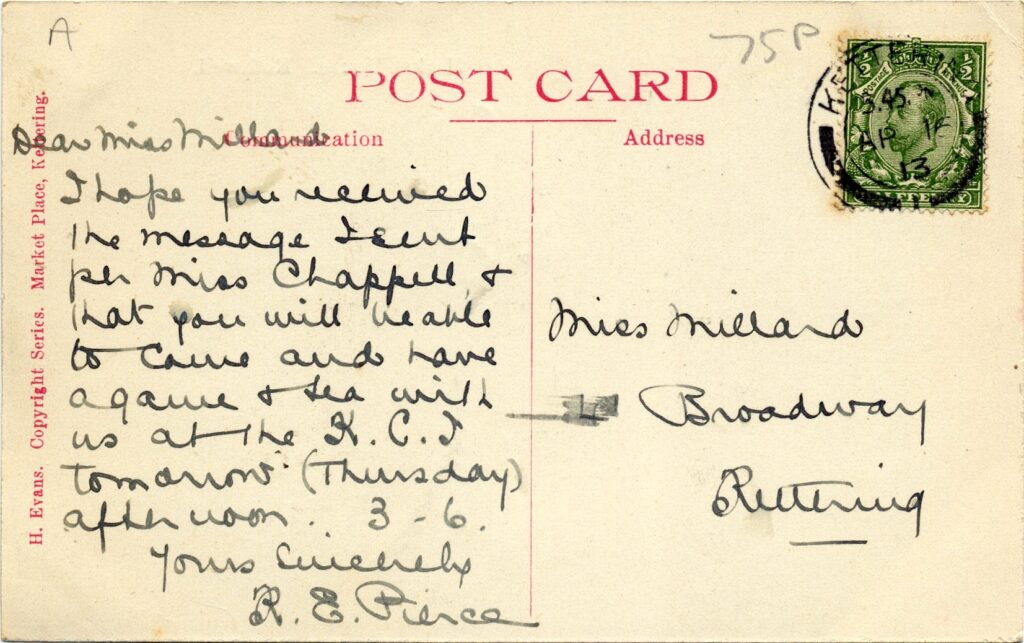 A
75P
POST CARD
Communication
Address
H. Evans. Copyright Series. Market Place, Kettering.
KETTERING
3.45
AP 16
13
½ ½
POSTAGE
HALFPENNY
Dear Miss Millard
I hope you received
the message I sent
per Miss Chappell &
that you will be able
to come and have
a game & tea with
us at the K. C. I
tomorrow (Thursday)
afternoon. 3 - 6.
Yours Sincerely
R. E. Pierce
Miss Millard
Broadway
Kettering